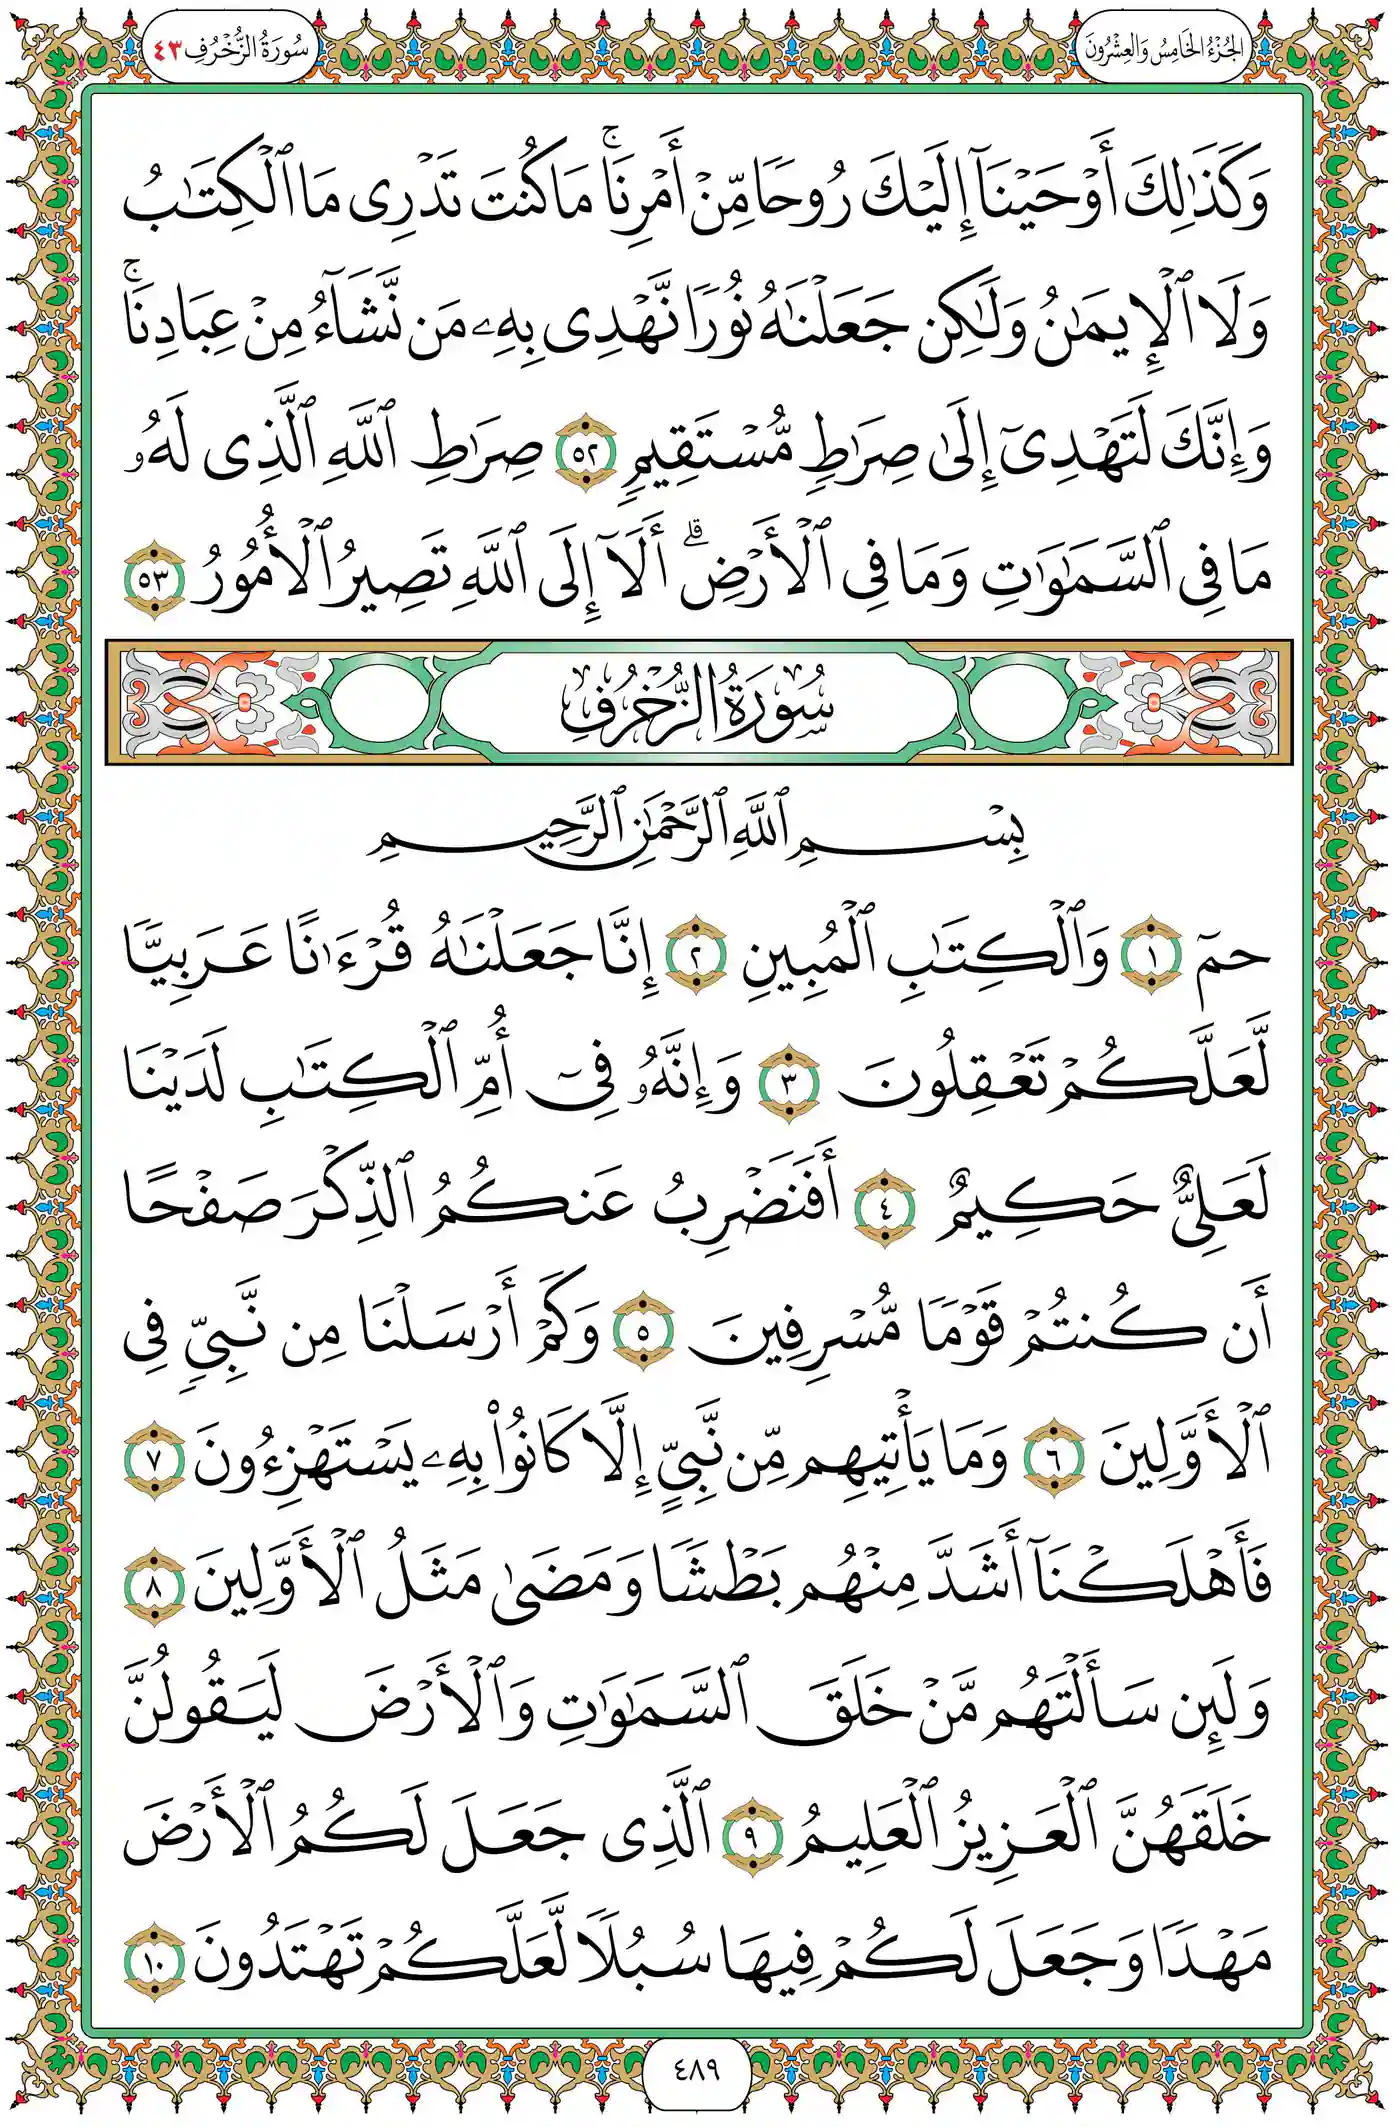 الجُزْءُ الخَامِسُ وَالعِشْرُونَ
سُورَةُ الزُّخْرُفِ ٤٣
وَكَذَٰلِكَ أَوْحَيْنَآ إِلَيْكَ رُوحًا مِّنْ أَمْرِنَا ۚ مَا كُنتَ تَدْرِى مَا ٱلْكِتَـٰبُ
وَلَا ٱلْإِيمَـٰنُ وَلَـٰكِن جَعَلْنَـٰهُ نُورًا نَّهْدِى بِهِۦ مَن نَّشَآءُ مِنْ عِبَادِنَا ۚ
وَإِنَّكَ لَتَهْدِىٓ إِلَىٰ صِرَٰطٍ مُّسْتَقِيمٍ ٥٢ صِرَٰطِ ٱللَّهِ ٱلَّذِى لَهُۥ
مَا فِى ٱلسَّمَـٰوَٰتِ وَمَا فِى ٱلْأَرْضِ ۗ أَلَآ إِلَى ٱللَّهِ تَصِيرُ ٱلْأُمُورُ ٥٣
سُورَةُ الزُّخْرُفِ
بِسْمِ ٱللَّهِ ٱلرَّحْمَـٰنِ ٱلرَّحِيمِ
حمٓ ١ وَٱلْكِتَـٰبِ ٱلْمُبِينِ ٢ إِنَّا جَعَلْنَـٰهُ قُرْءَٰنًا عَرَبِيًّا
لَّعَلَّكُمْ تَعْقِلُونَ ٣ وَإِنَّهُۥ فِىٓ أُمِّ ٱلْكِتَـٰبِ لَدَيْنَا
لَعَلِىٌّ حَكِيمٌ ٤ أَفَنَضْرِبُ عَنكُمُ ٱلذِّكْرَ صَفْحًا
أَن كُنتُمْ قَوْمًا مُّسْرِفِينَ ٥ وَكَمْ أَرْسَلْنَا مِن نَّبِىٍّ فِى
ٱلْأَوَّلِينَ ٦ وَمَا يَأْتِيهِم مِّن نَّبِىٍّ إِلَّا كَانُوا۟ بِهِۦ يَسْتَهْزِءُونَ ٧
فَأَهْلَكْنَآ أَشَدَّ مِنْهُم بَطْشًا وَمَضَىٰ مَثَلُ ٱلْأَوَّلِينَ ٨
وَلَئِن سَأَلْتَهُم مَّنْ خَلَقَ ٱلسَّمَـٰوَٰتِ وَٱلْأَرْضَ لَيَقُولُنَّ
خَلَقَهُنَّ ٱلْعَزِيزُ ٱلْعَلِيمُ ٩ ٱلَّذِى جَعَلَ لَكُمُ ٱلْأَرْضَ
مَهْدًا وَجَعَلَ لَكُمْ فِيهَا سُبُلًا لَّعَلَّكُمْ تَهْتَدُونَ ١٠
٤٨٩